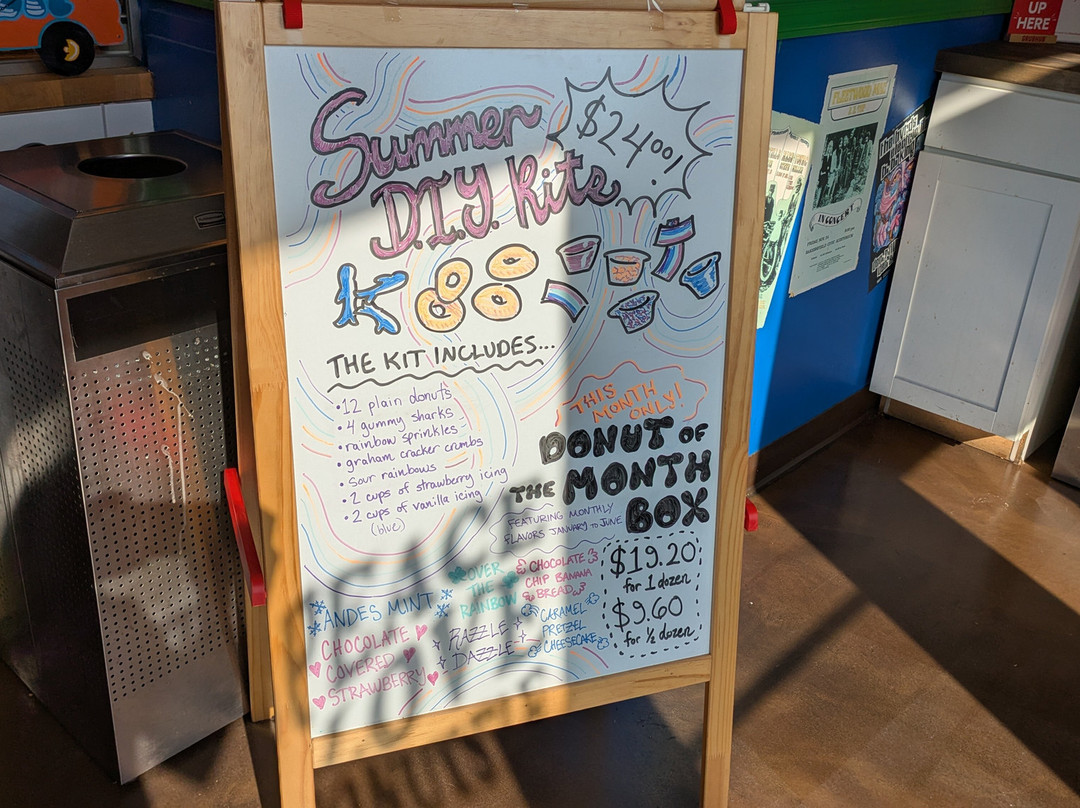 UP
HERE
Summer
D.I.Y. Kits
$24.00!
THE KIT INCLUDES...
• 12 plain donuts
• 4 gummy sharks
• rainbow sprinkles
• graham cracker crumbs
• sour rainbows
• 2 cups of strawberry icing
• 2 cups of vanilla icing
(blue)
THIS
MONTH
ONLY!
DONUT OF
THE MONTH
BOX
FEATURING MONTHLY
FLAVORS JANUARY TO JUNE
ANDES MINT
CHOCOLATE
COVERED
STRAWBERRY
OVER
THE
RAINBOW
RAZZLE
DAZZLE
CHOCOLATE
CHIP BANANA
BREAD
CARAMEL
PRETZEL
CHEESECAKE
$19.20
for 1 dozen
$9.60
for ½ dozen